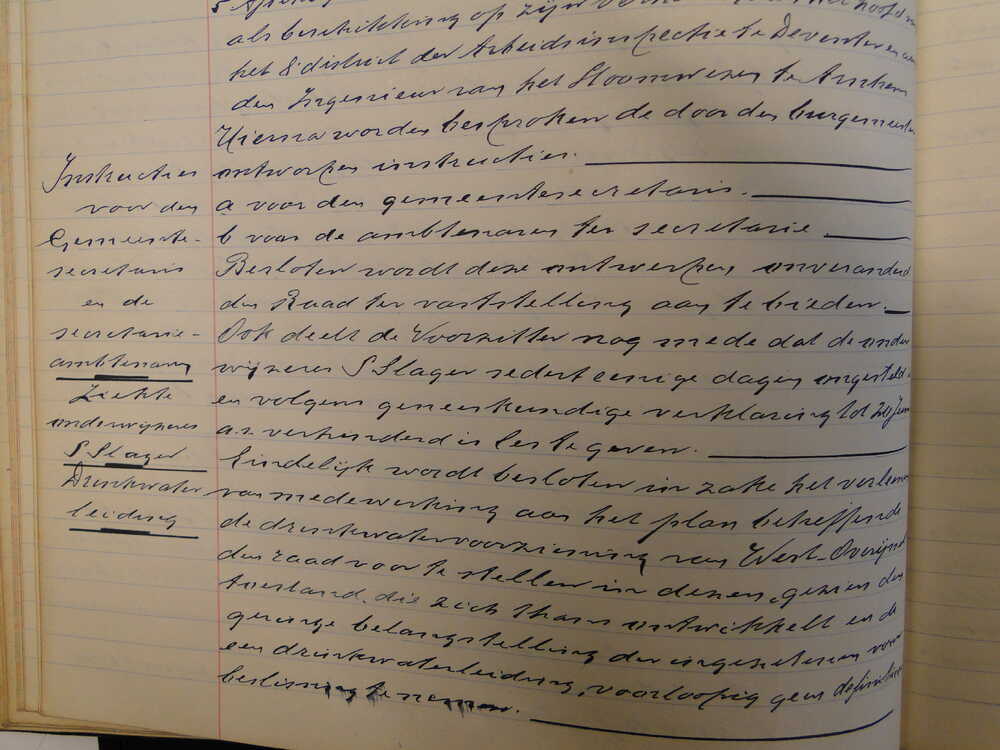 als beschikking op zijn
het 8e district der Arbeidsinspectie te Deventer en aan
den Ingenieur van het Stoomwezen te Arnhem
Hierna worden besproken de door den burgemeester
ontworpen instructies.
a voor den gemeentesecretaris.
b voor de ambtenaren ter secretarie
Besloten wordt deze ontwerpen onveranderd
den Raad ter vaststelling aan te bieden.
Ook deelt de Voorzitter nog mede dat de onder
wijzeres S Slager sedert eenige dagen ongesteld is
en volgens geneeskundige verklaring tot 20 Juni
a.s. verhinderd is les te geven.
Eindelijk wordt besloten in zake het verleenen
van medewerking aan het plan betreffende
de drinkwatervoorziening van West-Overijssel
den raad voor te stellen in dezen, gezien den
toestand, die zich thans ontwikkelt en de
geringe belangstelling der ingezetenen voor
een drinkwaterleiding, voorloopig geen definitieve
beslissing te nemen.
Instructies
voor den
Gemeente-
secretaris
en de
secretarie-
ambtenaren
Ziekte
onderwijzeres
S Slager
Drinkwater
leiding